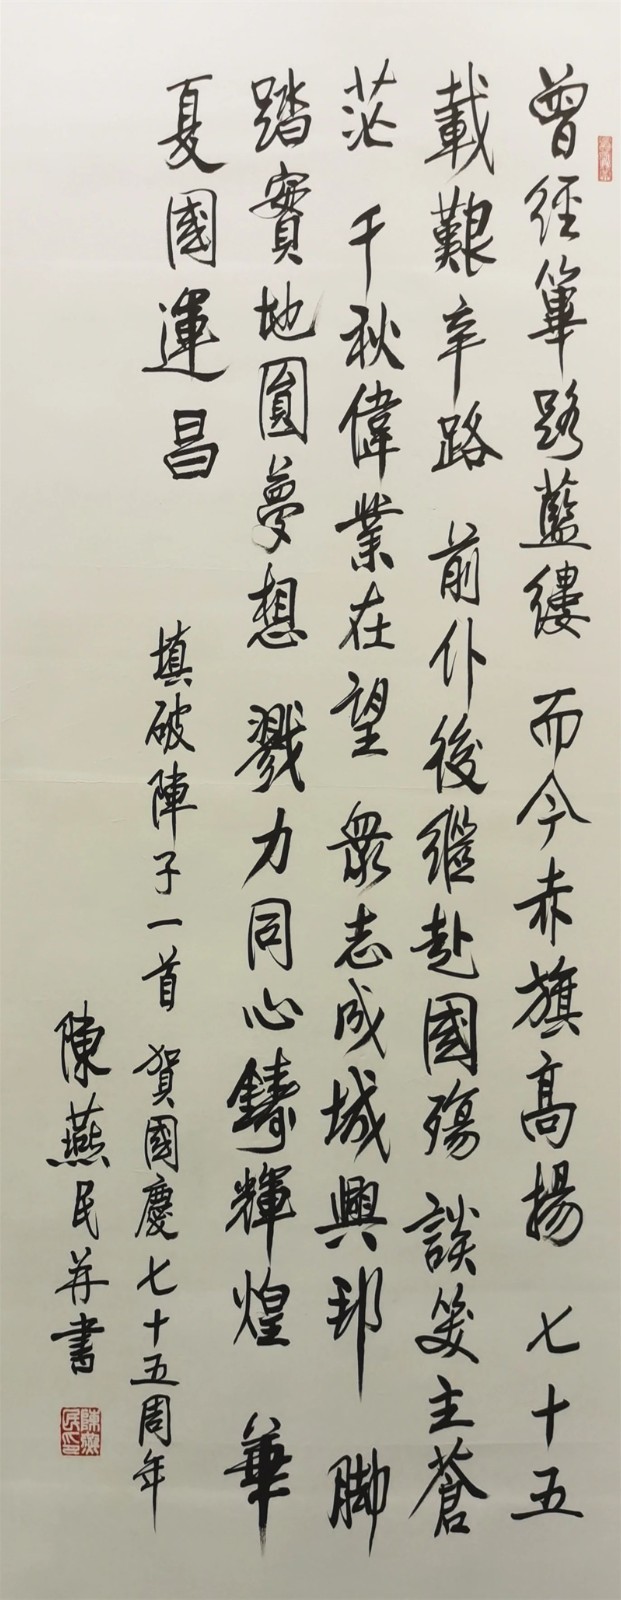 曾經篳路藍縷 而今赤旗高揚 七十五
載艱辛路 前仆後繼赴國殤 談笑主蒼
茫 千秋偉業在望 眾志成城興邦 腳
踏實地圓夢想 戮力同心鑄輝煌 華
夏國運昌
填破陣子一首 賀國慶七十五周年
陳燕民并書
陳燕民印